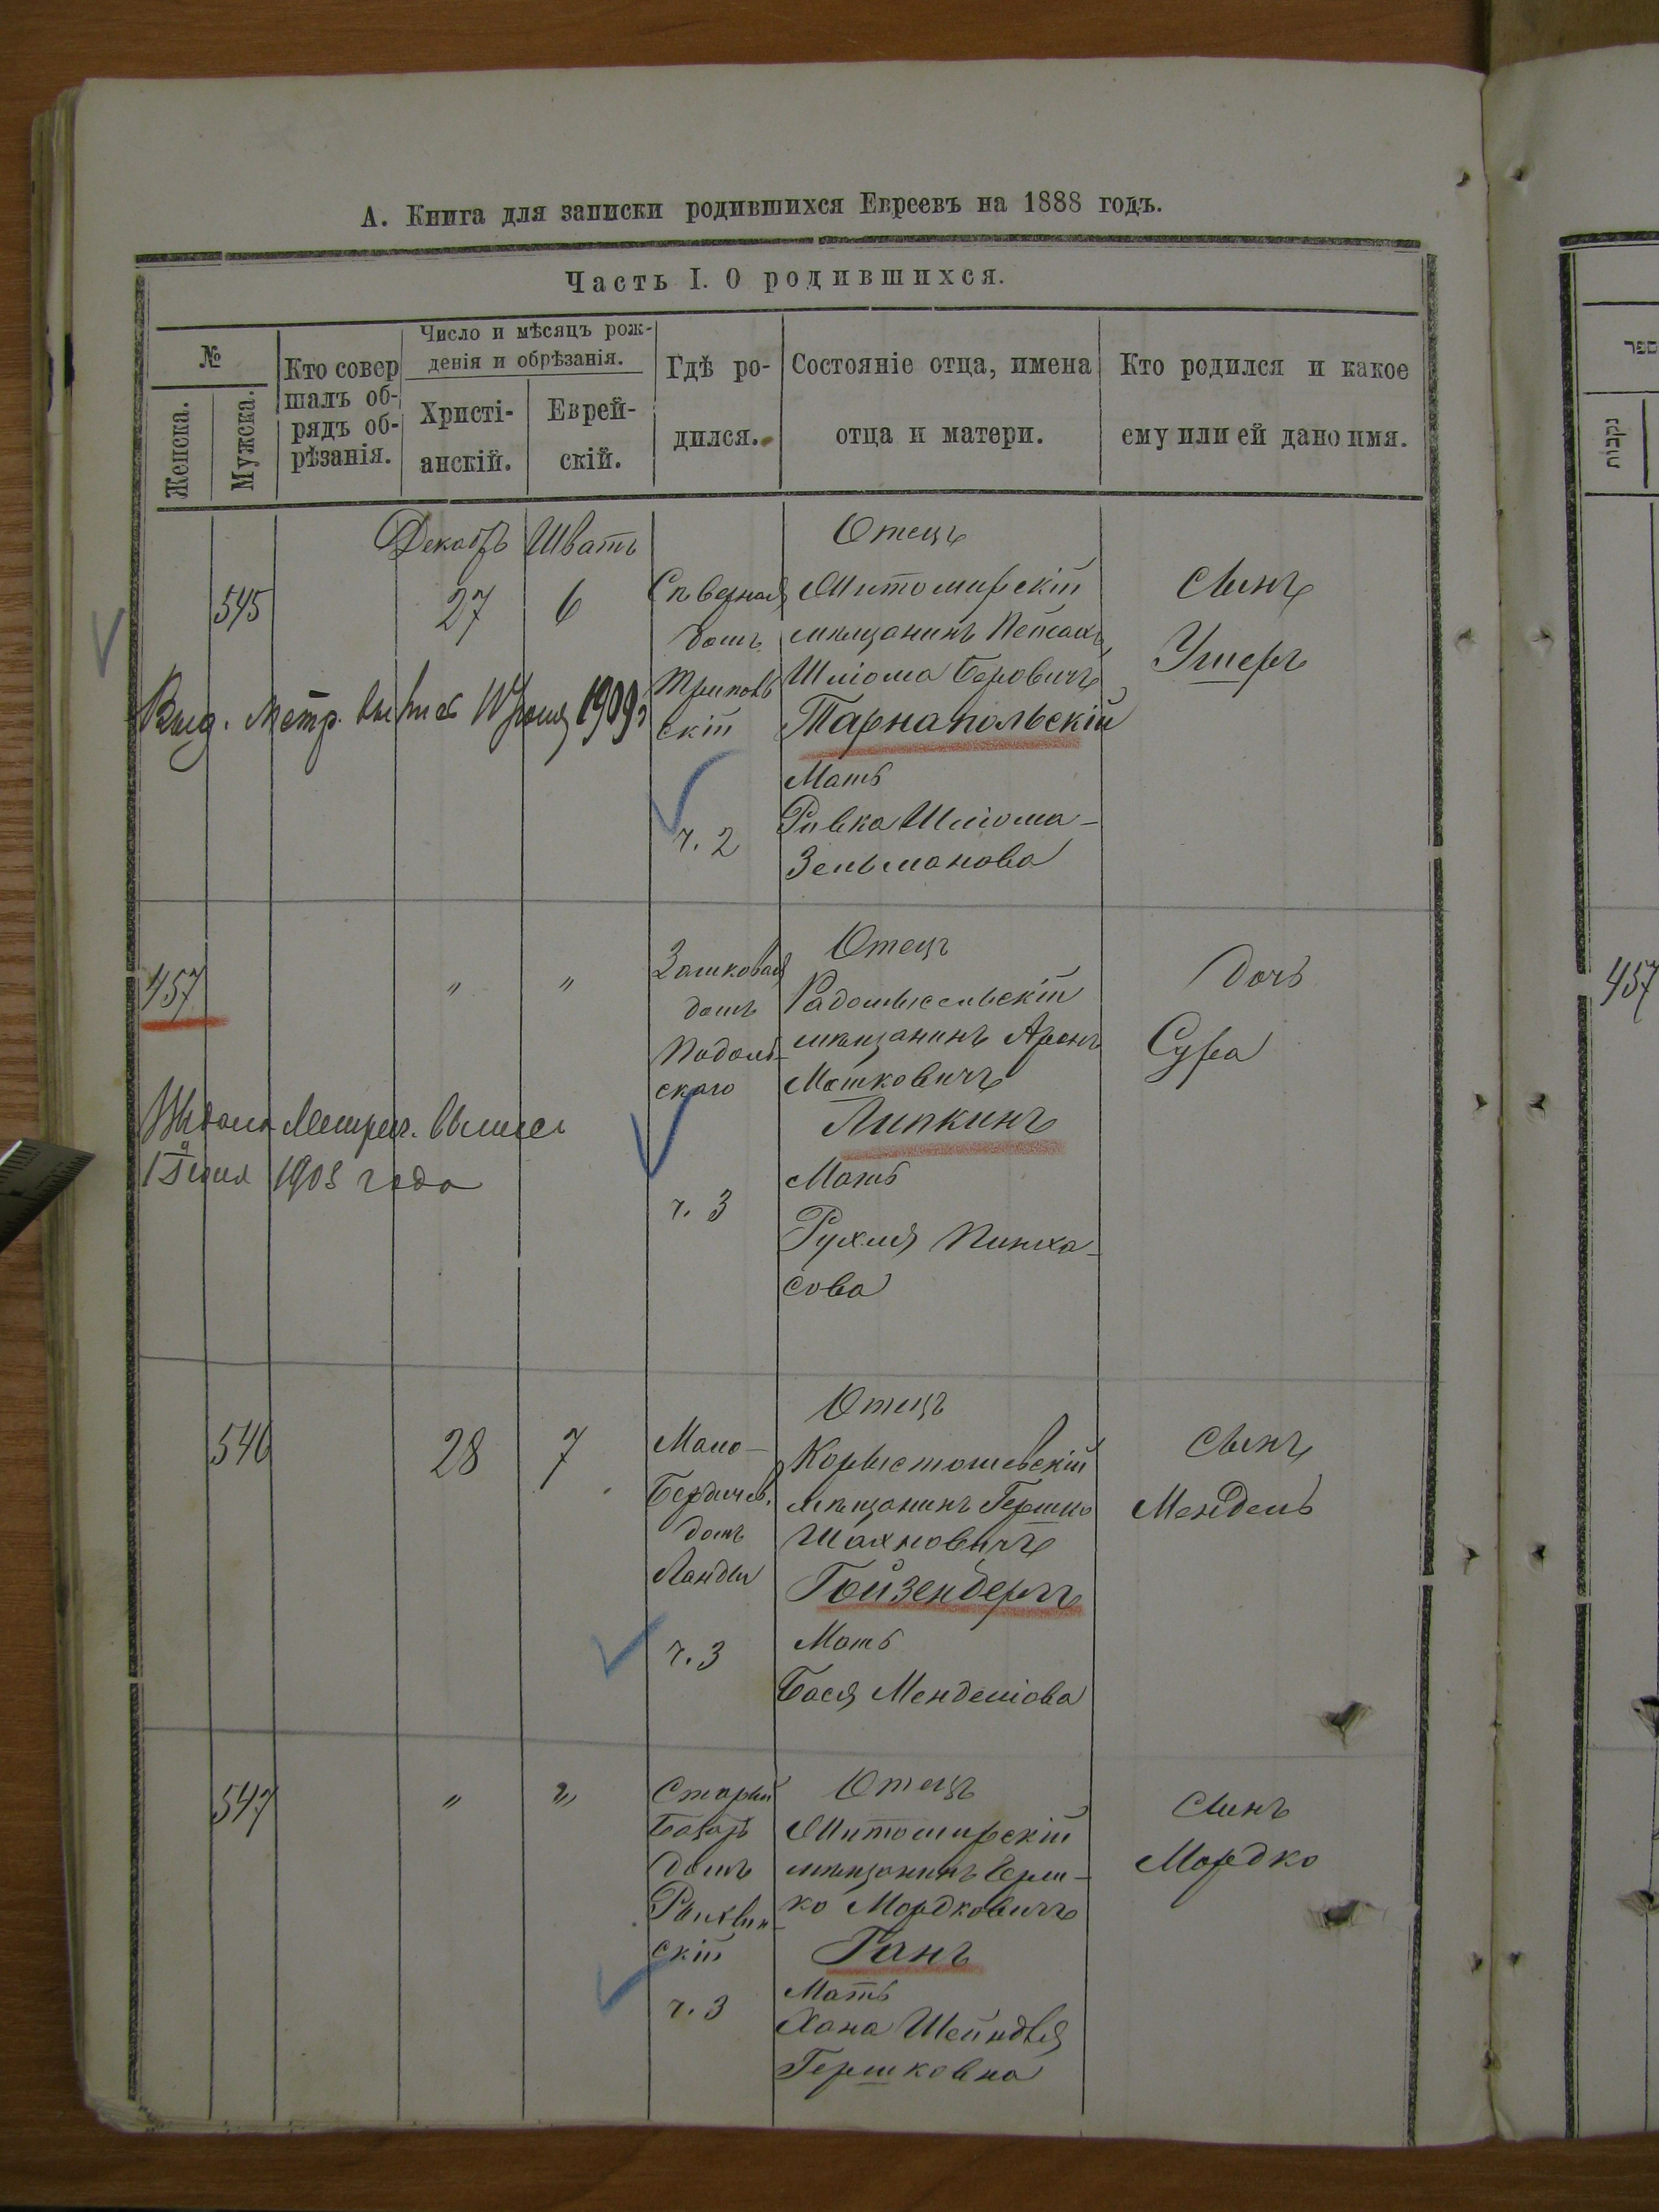 А. Книга для записки родившихся Евреевъ на 1888 годъ.
Часть I. О родившихся.
№
Женска.
Мужска.
Кто совер
шалъ об-
рядъ об-
рѣзанія.
Число и мѣсяцъ рож-
денія и обрѣзанія.
Христі-
анскій.
Еврей-
скій.
Гдѣ ро-
дился.
Состояніе отца, имена
отца и матери.
Кто родился и какое
ему или ей дано имя.
Декабрь Шватъ
545
27
6
Сѣверная
домъ
скій
ч. 2
Отецъ
Житомирскій
мѣщанинъ Пейсахъ
Шліома Беровичъ
Тарнапольскій
Мать
Ривка Шліома-
Зельманова
Сынъ
Ушеръ
Выд. Метр. 1909
457
"
"
Замковая
домъ
Подоль-
скаго
ч. 3
Отецъ
Радомысльскій
мѣщанинъ Аронъ
Мошковичъ
Липкинъ
Мать
Рухля Пинха-
сова
Дочь
Сура
Метрич.
1908 года
546
28
7
Мало-
Бердичев.
домъ
Ланды
ч. 3
Отецъ
Коростышевскій
мѣщанинъ Гершко
Шахновичъ
Гойзенбергъ
Мать
Бася Менделіова
Сынъ
Мендель
547
"
"
Старый
Базаръ
домъ
скій
ч. 3
Отецъ
Житомирскій
мѣщанинъ Герш-
ко Мордковичъ
Мать
Хана Шейндля
Гершковна
Сынъ
Мордко
ספר
נקבות
457